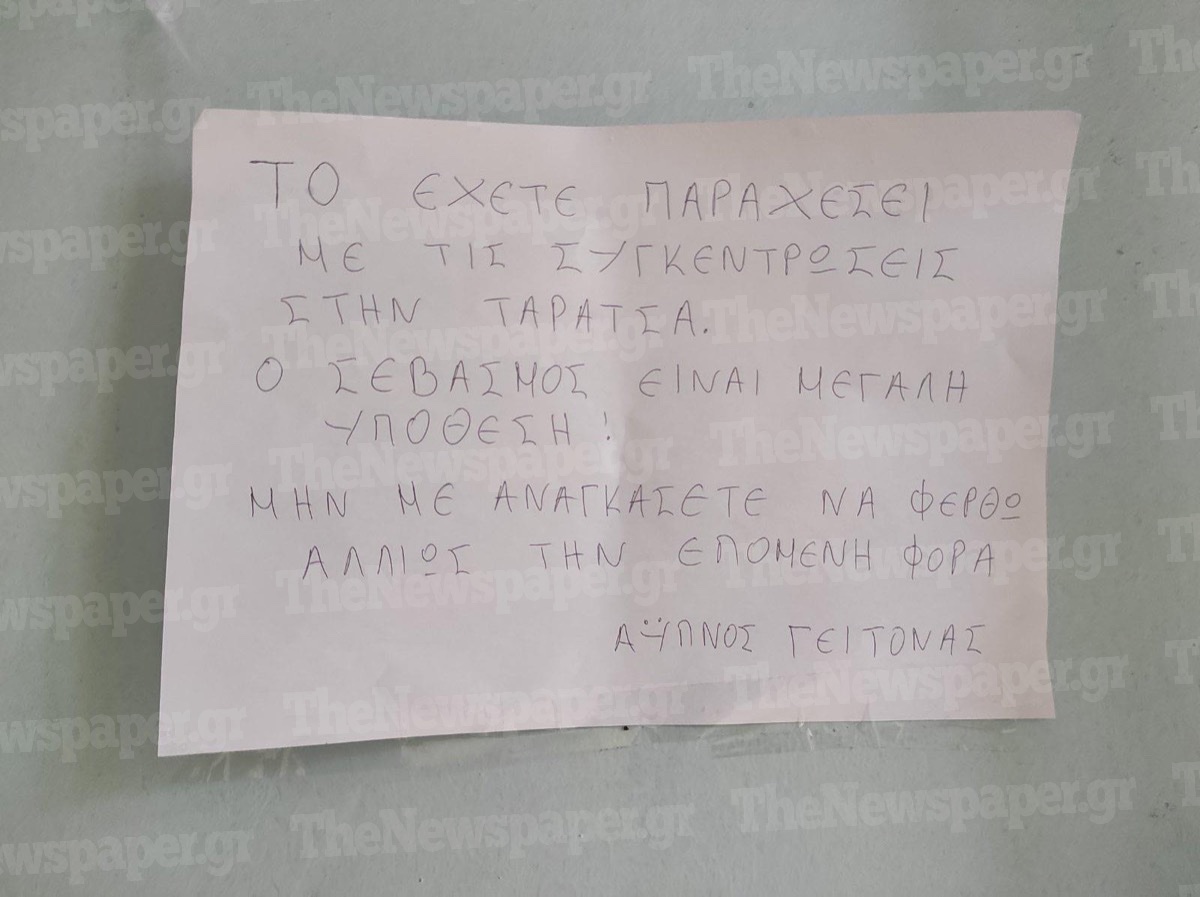 ΤΟ ΕΧΕΤΕ ΠΑΡΑΧΕΣΕΙ
ΜΕ ΤΙΣ ΣΥΓΚΕΝΤΡΩΣΕΙΣ
ΣΤΗΝ ΤΑΡΑΤΣΑ.
Ο ΣΕΒΑΣΜΟΣ ΕΙΝΑΙ ΜΕΓΑΛΗ
ΥΠΟΘΕΣΗ!
ΜΗΝ ΜΕ ΑΝΑΓΚΑΣΕΤΕ ΝΑ ΦΕΡΘΩ
ΑΛΛΙΩΣ ΤΗΝ ΕΠΟΜΕΝΗ ΦΟΡΑ
ΑΫΠΝΟΣ ΓΕΙΤΟΝΑΣ
TheNewspaper.gr